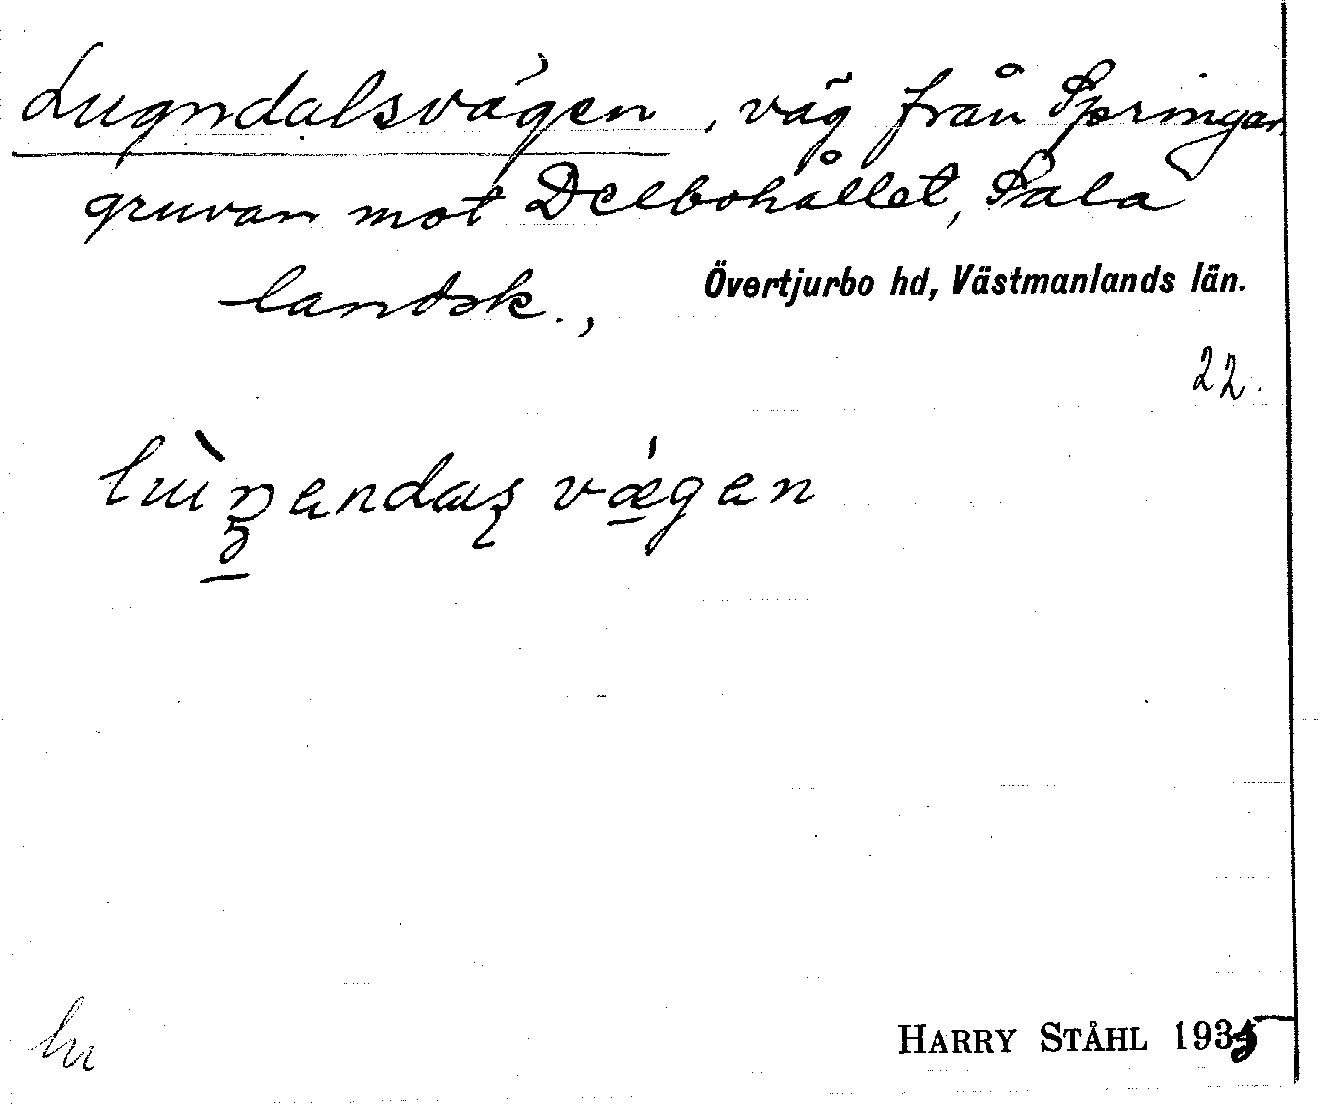 Lugndalsvägen, väg från Springar
gruvan mot Delbohållet, Sala
landsk., Övertjurbo hd, Västmanlands län.
22.
vægen
HARRY STÅHL 1935